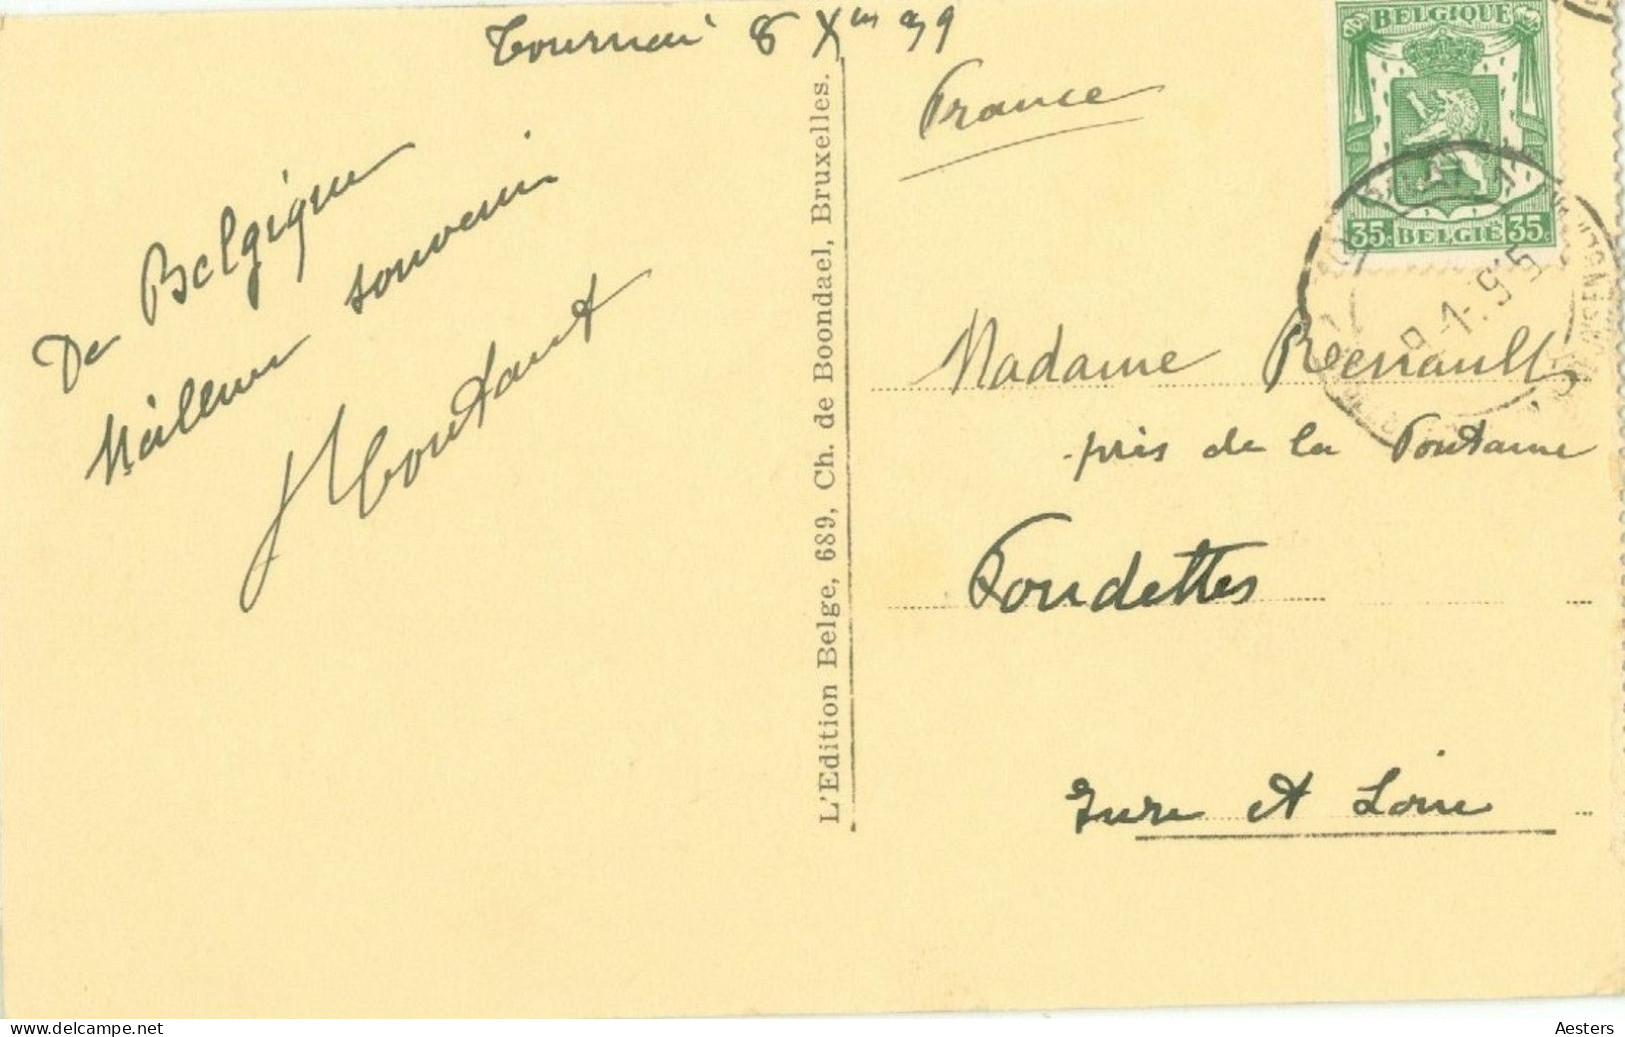 Tournai 8 Xbre 39
De Belgique
Meilleur souvenir
L'Edition Belge, 689, Ch. de Boondael, Bruxelles.
France
BELGIQUE
35c BELGIË 35c
Madame Renault
près de la Fontaine
Fondettes
Indre et Loire
Aesters © www.delcampe.net